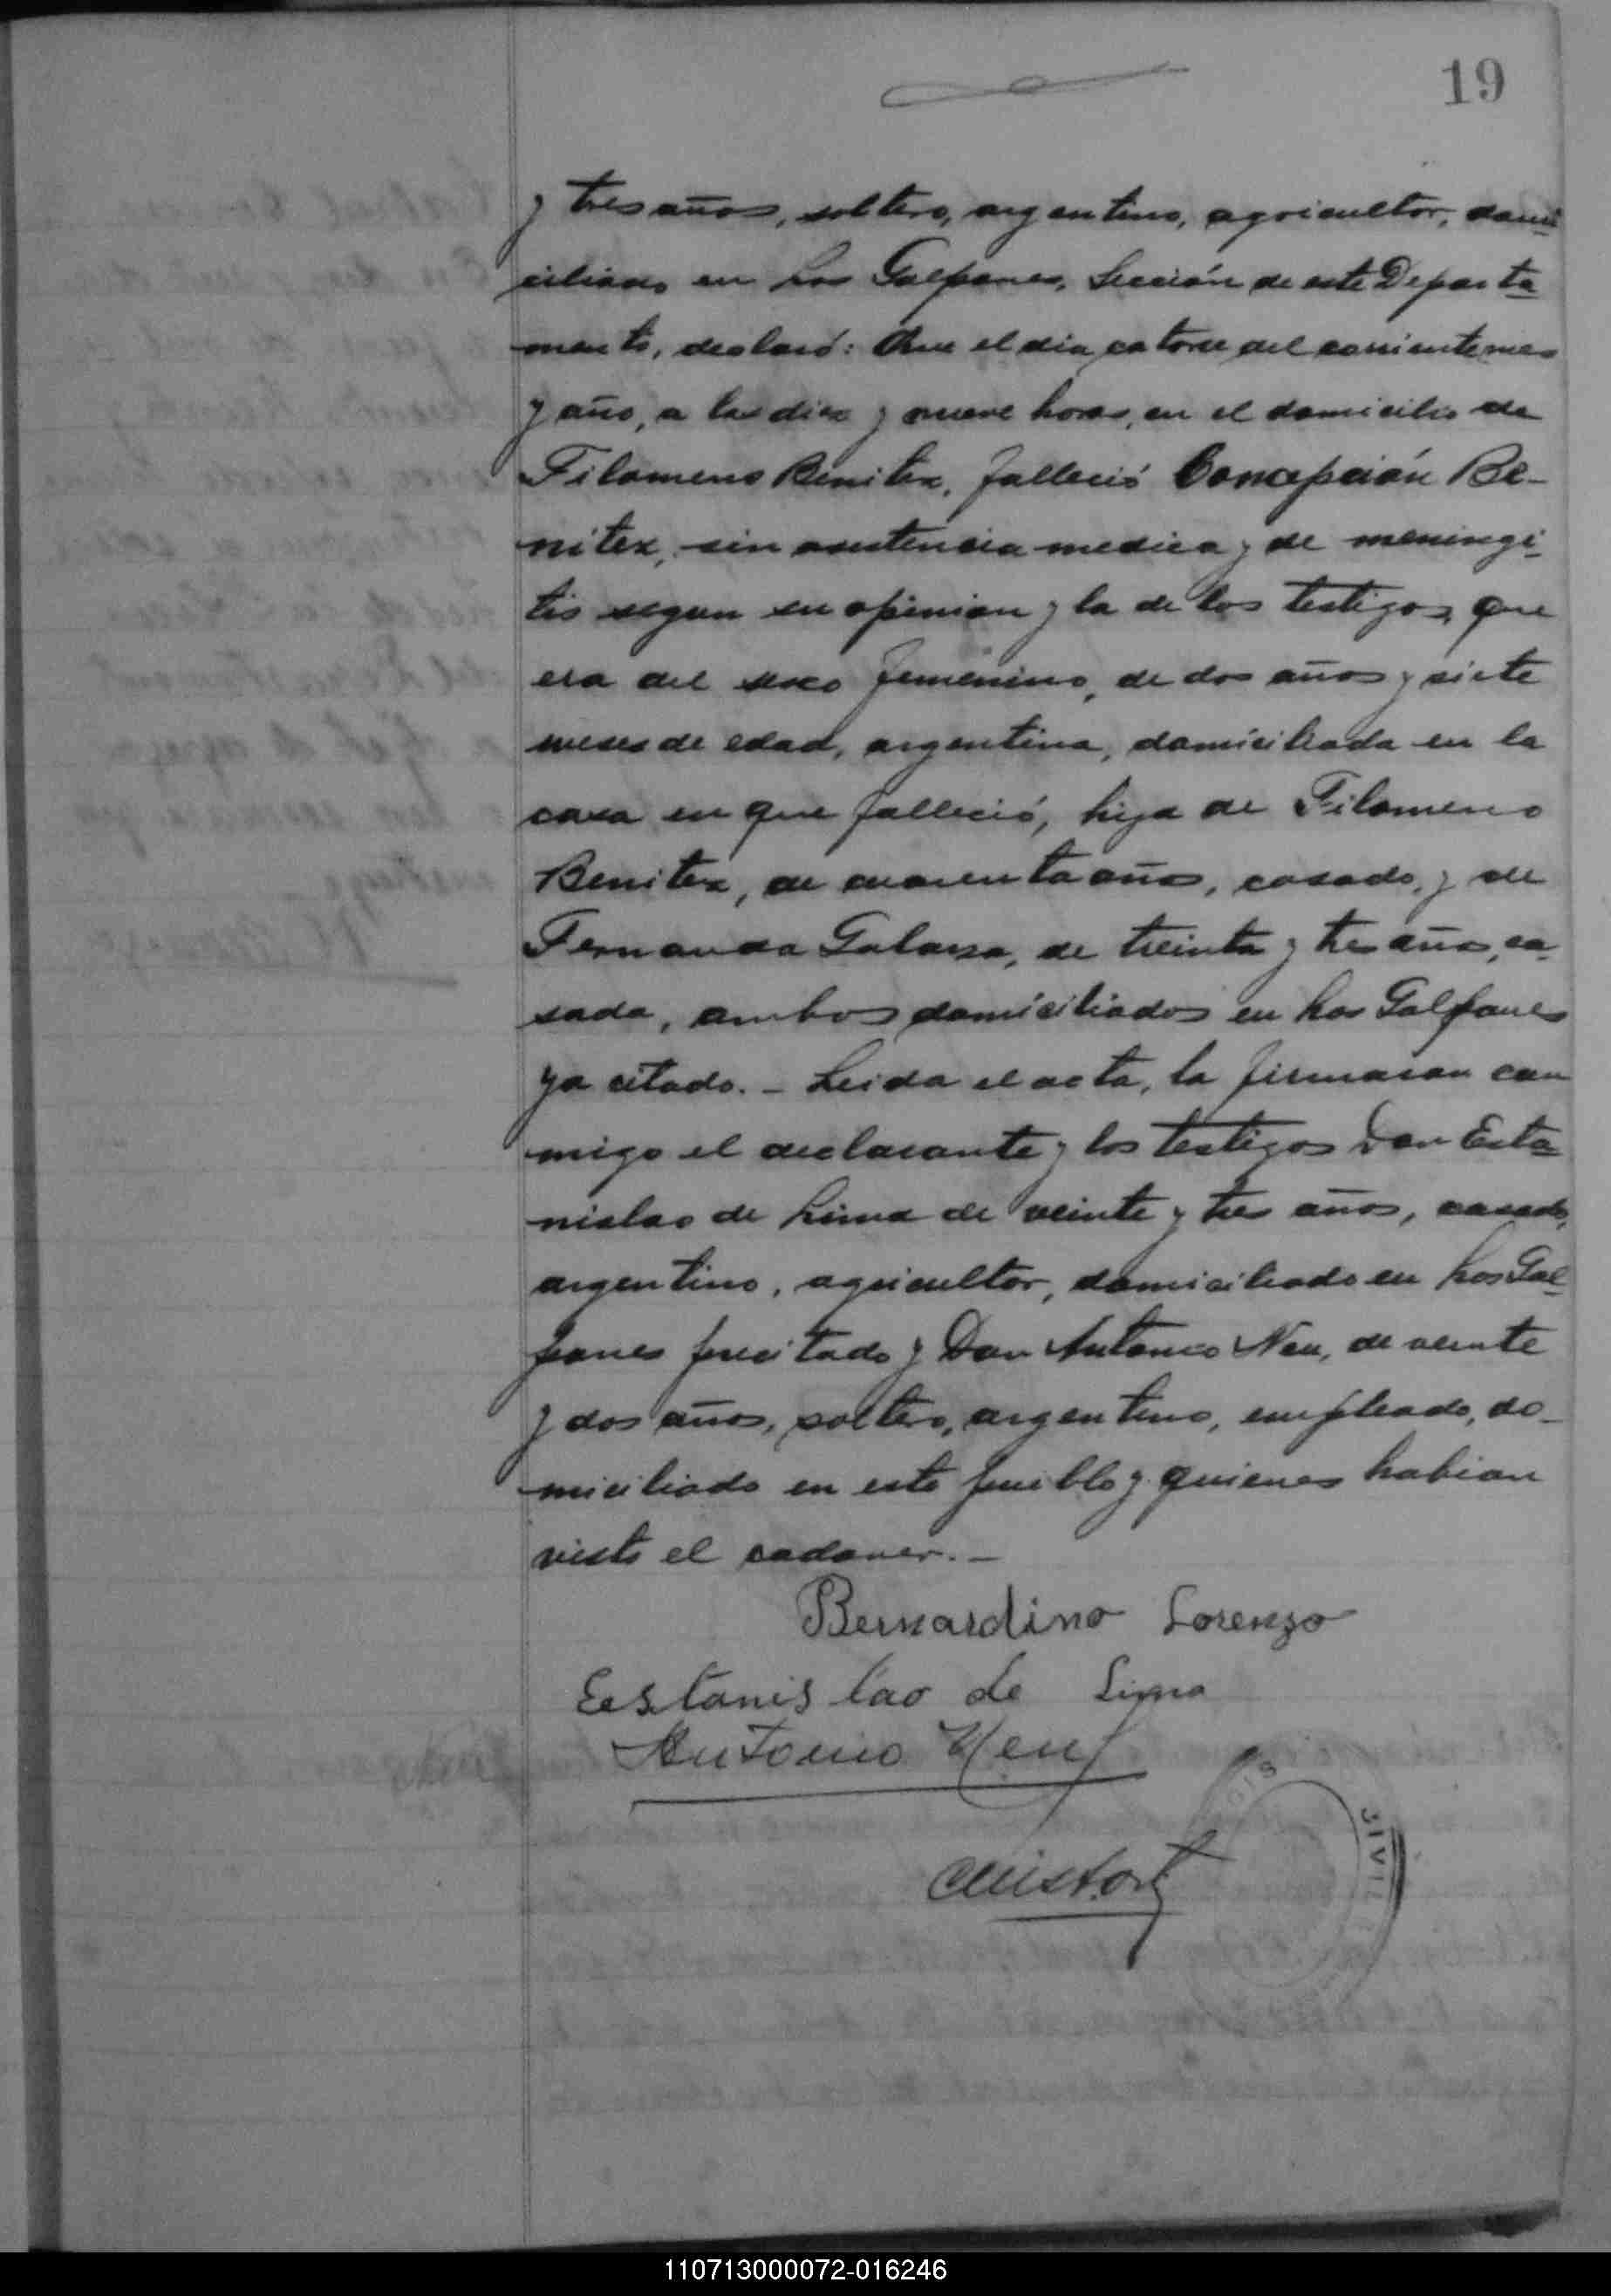 19
y tres años, soltero, argentino, agricultor, domi
ciliado en Los Galpones, Sección de este Departa
mento, declaró: Que el dia catorce del corriente mes
y año, a las diez y nueve horas, en el domicilio de
Filomeno Benitez, falleció Concepción Be-
nitez, sin asistencia medica y de meningi
tis segun su opinion y la de los testigos, que
era del sexo femenino, de dos años y siete
meses de edad, argentina, domiciliada en la
casa en que falleció, hija de Filomeno
Benitez, de cuarenta años, casado, y de
Fernanda Galarza, de treinta y tres años, ca
sada, ambos domiciliados en Los Galpones
ya citado. - Leida el acta, la firmaron con
migo el declarante y los testigos Don Esta
nislao de Lima de veinte y tres años, casado,
argentino, agricultor, domiciliado en Los Gal
pones precitado y Don Antonio Neu, de veinte
y dos años, soltero, argentino, empleado, do-
miciliado en este pueblo y quienes habian
visto el cadaver. -
Bernardino Lorenzo
Eestanislao de Lima
Antonio Neu
CIVIL
110713000072-016246